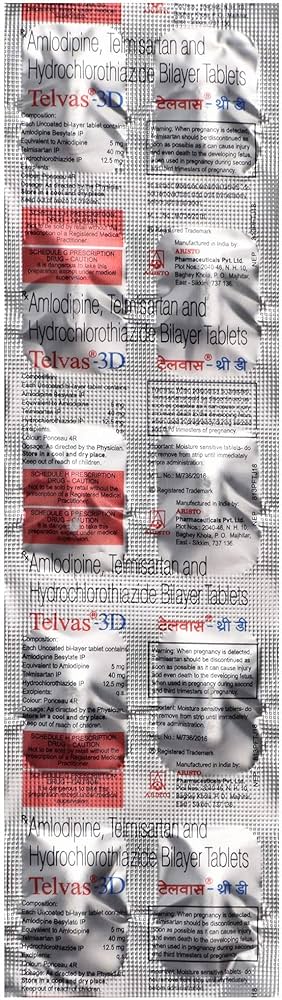 Rx Amlodipine, Telmisartan and
Hydrochlorothiazide Bilayer Tablets
Telvas®-3D टेलवास®-थ्री डी
Composition:
Each Uncoated bi-layer tablet contains
Amlodipine Besylate IP
Equivalent to Amlodipine 5 mg
Telmisartan IP 40 mg
Hydrochlorothiazide IP 12.5 mg
Excipients q.s.
Dosage: As directed by the Physician
SCHEDULE H PRESCRIPTION
DRUG - CAUTION
Not to be sold by retail without the
prescription of a Registered Medical
Practitioner.
SCHEDULE G PRESCRIPTION
DRUG - CAUTION
It is dangerous to take this
preparation except under medical
supervision.
Warning: When pregnancy is detected,
Telmisartan should be discontinued as
soon as possible as it can cause injury
and even death to the developing fetus,
when used in pregnancy during second
and third trimesters of pregnancy.
® Registered Trademark
Manufactured in India by:
ARISTO
Pharmaceuticals Pvt. Ltd.
Plot Nos.: 2040-46, N. H. 10,
Baghey Khola, P. O. Majhitar,
East - Sikkim, 737 136.
ARISTO
Rx Amlodipine, Telmisartan and
Hydrochlorothiazide Bilayer Tablets
Telvas®-3D टेलवास®-थ्री डी
Composition:
Each Uncoated bi-layer tablet contains
Amlodipine Besylate IP
Equivalent to Amlodipine 5 mg
Telmisartan IP 40 mg
Hydrochlorothiazide IP 12.5 mg
Excipients q.s.
Colour: Ponceau 4R
Dosage: As directed by the Physician.
Store in a cool and dry place.
Keep out of reach of children.
SCHEDULE H PRESCRIPTION
DRUG - CAUTION
Not to be sold by retail without the
prescription of a Registered Medical
Practitioner.
SCHEDULE G PRESCRIPTION
DRUG - CAUTION
It is dangerous to take this
preparation except under medical
supervision.
and third trimesters of pregnancy
Important: Moisture sensitive tablets- do
not remove from strip until immediately
before administration.
M. L. No.: M/736/2016
® Registered Trademark
Manufactured in India by:
ARISTO
Pharmaceuticals Pvt. Ltd.
Plot Nos.: 2040-46, N. H. 10,
Baghey Khola, P. O. Majhitar,
East - Sikkim, 737 136.
ARISTO
Rx Amlodipine, Telmisartan and
Hydrochlorothiazide Bilayer Tablets
Telvas®-3D टेलवास®-थ्री डी
Composition:
Each Uncoated bi-layer tablet contains
Amlodipine Besylate IP
Equivalent to Amlodipine 5 mg
Telmisartan IP 40 mg
Hydrochlorothiazide IP 12.5 mg
Excipients: q.s.
Colour: Ponceau 4R
Dosage: As directed by the Physician.
Store in a cool and dry place.
Keep out of reach of children.
SCHEDULE H PRESCRIPTION
DRUG - CAUTION
Not to be sold by retail without the
prescription of a Registered Medical
Practitioner.
It is dangerous to take this
preparation except under medical
supervision.
Warning: When pregnancy is detected,
Telmisartan should be discontinued as
soon as possible as it can cause injury
and even death to the developing fetus,
when used in pregnancy during second
and third trimesters of pregnancy.
Important: Moisture sensitive tablets- do
not remove from strip until immediately
before administration.
M. L. No.: M/736/2016
® Registered Trademark
Manufactured in India by:
ARISTO
Pharmaceuticals Pvt. Ltd.
ARISTO
East - Sikkim, 737 136.
Rx Amlodipine, Telmisartan and
Hydrochlorothiazide Bilayer Tablets
Telvas®-3D टेलवास®-थ्री डी
Composition:
Each Uncoated bi-layer tablet contains
Amlodipine Besylate IP
Equivalent to Amlodipine 5 mg
Telmisartan IP 40 mg
Hydrochlorothiazide IP 12.5 mg
Excipients q.s.
Colour: Ponceau 4R
Dosage: As directed by the Physician.
Store in a cool and dry place.
Keep out of reach of children.
Warning: When pregnancy is detected,
Telmisartan should be discontinued as
soon as possible as it can cause injury
and even death to the developing fetus,
when used in pregnancy during second
and third trimesters of pregnancy.
Important: Moisture sensitive tablets- do